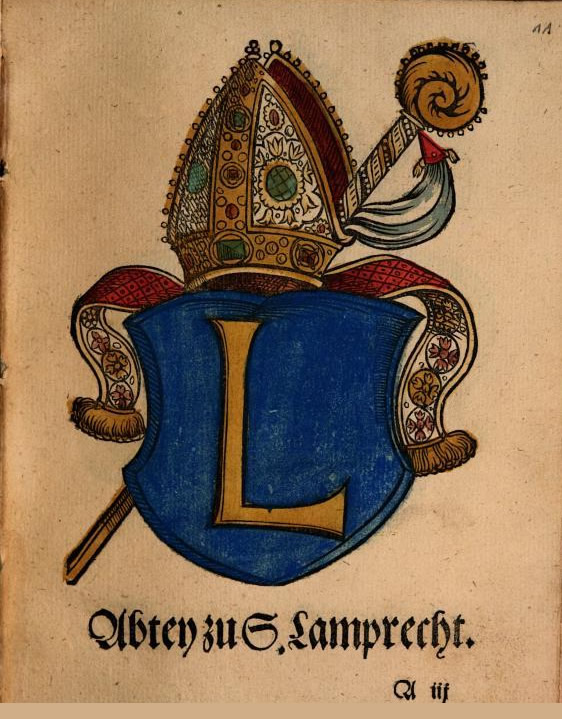 11
L
Abtey zu S. Lamprecht.
A iij